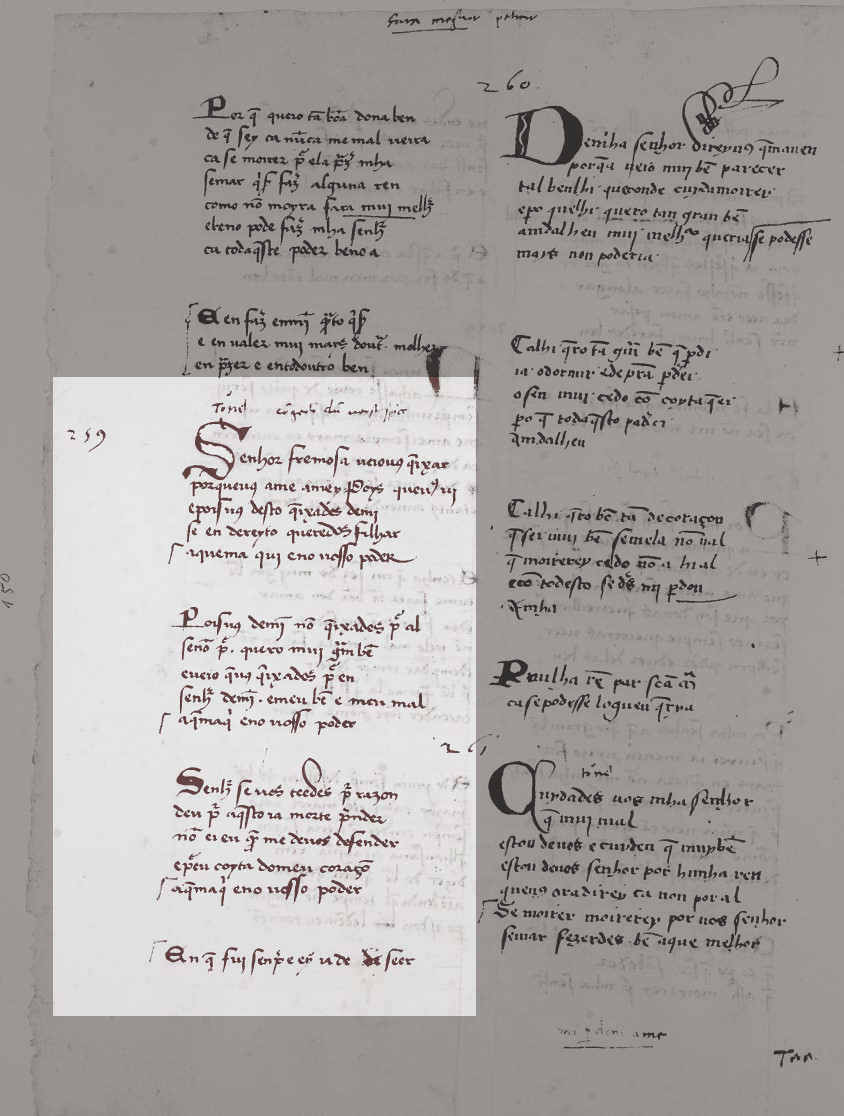 fara melhor
Por q̄ quero tā bōa dona ben
de q̄ sey ca nūca me mal verra
ca se morrer p̄ ela p̄z mha
semar q̄s faz alguna ren
como nō moyra fara mui melh
e beno pode faz mha senh
ca toda q̄ste poder beno a
A en faz enmī q̄to q̄s
e en valer mui mays dout molher
en p̄zer e entodoutro ben
Tōnel
259
Senhor fremosa veious q̄ixar
porqueuos ame amey Poys queuꝰ vi
e poisuos desto q̄ixades demi
se en dereyto queredes filhar
aquema qui eno uosso poder
Poisuꝰ demī nō q̄ixades p̄ al
senō p̄. quero mui grā bē
e ueio q̄uos q̄ixades p̄ en
senh demī. emeu bē e meu mal
aq̄maq̄ eno uosso poder
Senh se uos teedes p̄ razon
deu p̄ aq̄sto ia morte p̄nder
nō ei eu q̄ me deuos defender
e p̄eu coyta domeu coraçō
aq̄maq̄ eno uosso poder
En q̄ fui senp̄ e ey ia de seer
260.
De mha senhor direyuos q̄ mauen
porq̄a ueio mui bē parecer
tal benlhi quer onde cuyd a moirer
e pero quelhi quero tan gran bē
aindalh eu mui melhor queria se podesse
mays non poderia
Calhi q̄ro tā grā bē q̄ p̄di
ia o dormir e de prā p̄derei
o sen mui cedo cō coyta q̄ ei
pero q̄ toda q̄sto padeci
aindalheu
Calhi q̄ro bē tā de coraçon
q̄ sei mui bē semela nō ual
q̄ moirerey cedo nō a hi al
e cō todesto se d̄s mī p̄don
Ainha
ca se podesse logueu q̄rria
261
tōnel
Cuydades uos mha senhor
q̄ mui mal
estou deuos e cuydeu q̄ muy bē
estou deuos senhor por hunha ren
queuos ora direy ca non por al
Se moirer moirerey por uos senhor
semar fezerdes bē aque melhor